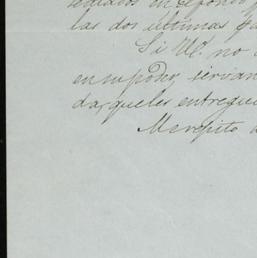 las dos ultimas
Si Vd. no
en su poder, sirvan
da, queles entregue
Me repito